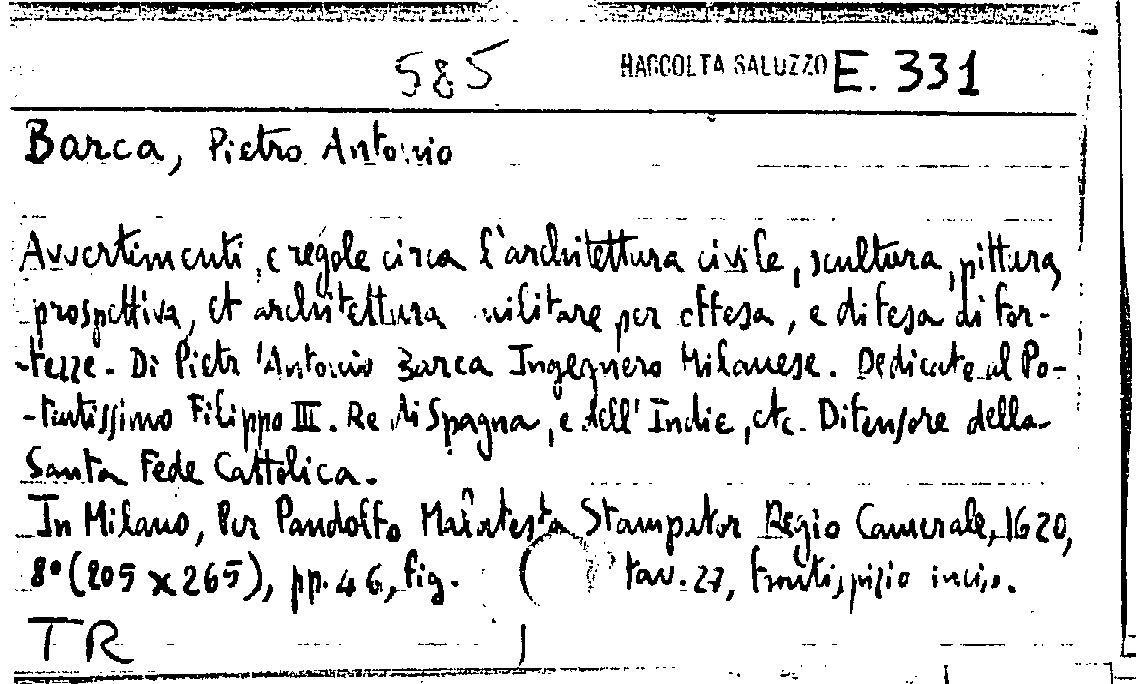 585 RACCOLTA SALUZZO E. 331
Barca, Pietro Antonio
Avvertimenti, e regole circa l'architettura civile, scultura, pittura,
prospettiva, et architettura militare per offesa, e difesa di for-
-tezze. Di Pietr'Antonio Barca Ingegnero Milanese. Dedicate al Po-
-tentissimo Filippo III. Re di Spagna, e dell'Indie, etc. Difensore della
Santa Fede Cattolica.
In Milano, Per Pandolfo Malatesta Stampator Regio Camerale, 1620,
8° (205 x 265), pp. 46, fig. tav. 27, frontispizio inciso.
TR